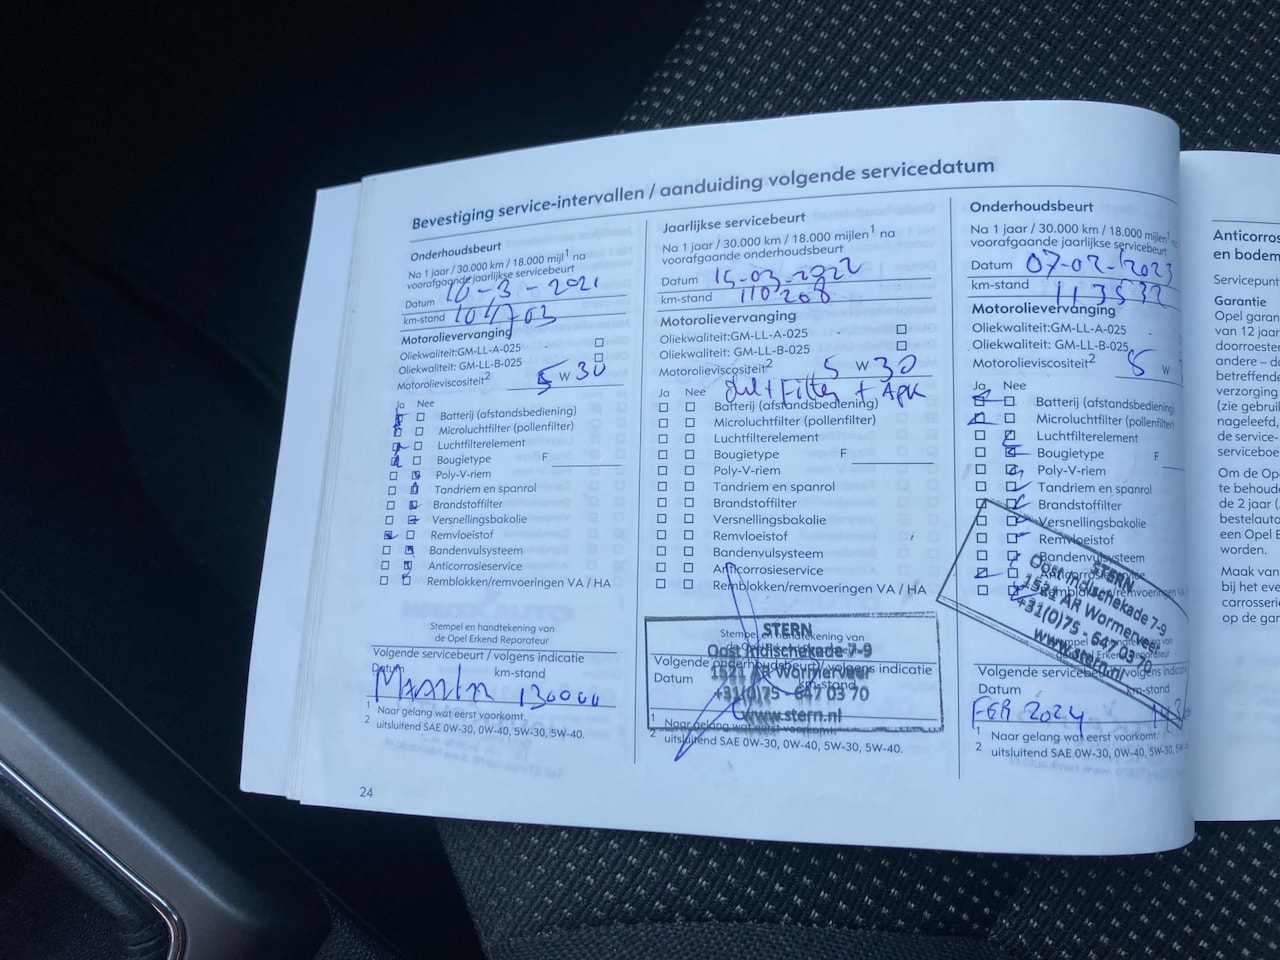 Bevestiging service-intervallen / aanduiding volgende servicedatum
Onderhoudsbeurt
Na 1 jaar / 30.000 km / 18.000 mijl¹ na
voorafgaande jaarlijkse servicebeurt
Datum 10-3-2021
km-stand 104703
Motorolievervanging
Oliekwaliteit:GM-LL-A-025
Oliekwaliteit: GM-LL-B-025
Motorolieviscositeit² 5 W 30
Ja Nee
Batterij (afstandsbediening)
Microluchtfilter (pollenfilter)
Luchtfilterelement
Bougietype F
Poly-V-riem
Tandriem en spanrol
Brandstoffilter
Versnellingsbakolie
Remvloeistof
Bandenvulsysteem
Anticorrosieservice
Remblokken/remvoeringen VA / HA
Stempel en handtekening van
de Opel Erkend Reparateur
Volgende servicebeurt / volgens indicatie
Datum km-stand
130000
¹ Naar gelang wat eerst voorkomt.
² uitsluitend SAE 0W-30, 0W-40, 5W-30, 5W-40.
24
Jaarlijkse servicebeurt
Na 1 jaar / 30.000 km / 18.000 mijlen¹ na
voorafgaande onderhoudsbeurt
Datum 15-03-2022
km-stand 110208
Motorolievervanging
Oliekwaliteit: GM-LL-A-025
Oliekwaliteit: GM-LL-B-025
Motorolieviscositeit² 5 W 30
Filter + Apk
Ja Nee
Batterij (afstandsbediening)
Microluchtfilter (pollenfilter)
Luchtfilterelement
Bougietype F
Poly-V-riem
Tandriem en spanrol
Brandstoffilter
Versnellingsbakolie
Remvloeistof
Bandenvulsysteem
Anticorrosieservice
Remblokken/remvoeringen VA / HA
Stempel en handtekening van
Volgende onderhoudsbeurt / volgens indicatie
Datum km-stand
STERN
Oost Indischekade 7-9
1521 AR Wormerveer
+31(0)75 - 647 03 70
www.stern.nl
¹ Naar gelang wat eerst voorkomt.
² uitsluitend SAE 0W-30, 0W-40, 5W-30, 5W-40.
Onderhoudsbeurt
Na 1 jaar / 30.000 km / 18.000 mijlen¹ na
voorafgaande jaarlijkse servicebeurt
Datum 07-02-2023
km-stand 113532
Motorolievervanging
Oliekwaliteit:GM-LL-A-025
Oliekwaliteit: GM-LL-B-025
Motorolieviscositeit² 5 W
Ja Nee
Batterij (afstandsbediening)
Microluchtfilter (pollenfilter)
Luchtfilterelement
Bougietype F
Poly-V-riem
Tandriem en spanrol
Brandstoffilter
Versnellingsbakolie
Remvloeistof
Bandenvulsysteem
STERN
Oost Indischekade 7-9
1521 AR Wormerveer
+31(0)75 - 647 03 70
www.stern.nl
Volgende servicebeurt / volgens indicatie
Datum km-stand
FEB 2024
¹ Naar gelang wat eerst voorkomt.
² uitsluitend SAE 0W-30, 0W-40, 5W-30, 5W-4
Anticorros
en bodem
Servicepunt
Garantie
Opel garan
van 12 jaar
doorroester
andere – de
betreffende
verzorging
(zie gebruik
nageleefd,
de service-
serviceboe
Om de Ope
te behoude
de 2 jaar (
bestelauto
een Opel E
worden.
Maak van
bij het eve
carrosserie
op de gar